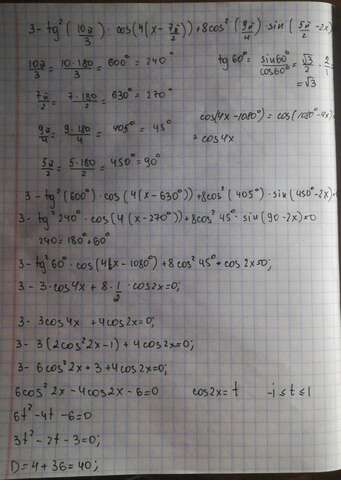 3 - tg² (10π/3) · cos (4(x - 7π/2)) + 8cos² (9π/4) sin (5π/2 - 2x)
10π/3 = 10·180/3 = 600° = 240°
tg 60° = sin60°/cos60° = √3/2 · 2/1 = √3
7π/2 = 7·180/2 = 630° = 270°
cos(4x - 1080°) = cos(1080° - 4x) = cos4x
9π/4 = 9·180/4 = 405° = 45°
5π/2 = 5·180/2 = 450° = 90°
3 - tg² (600°) · cos (4(x - 630°)) + 8cos² (405°) · sin (450° - 2x)
3 - tg² 240° · cos (4(x - 270°)) + 8cos² 45° · sin(90 - 2x) = 0
240 = 180° + 60°
3 - tg² 60° · cos(4x - 1080°) + 8cos² 45° · cos2x = 0;
3 - 3·cos4x + 8·1/2 · cos2x = 0;
3 - 3cos4x + 4cos2x = 0;
3 - 3(2cos² 2x - 1) + 4cos2x = 0;
3 - 6cos² 2x + 3 + 4cos2x = 0;
6cos² 2x - 4cos2x - 6 = 0 cos2x = t -1 ≤ t ≤ 1
6t² - 4t - 6 = 0
3t² - 2t - 3 = 0;
D = 4 + 36 = 40;